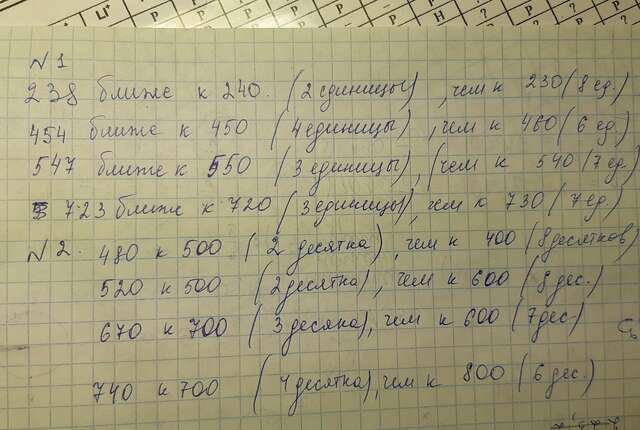 Li⁺ P P P P H ? ? P
N 1
238 ближе к 240. (2 единицы), чем к 230 (8 ед.)
454 ближе к 450 (4 единицы), чем к 460 (6 ед.)
547 ближе к 550 (3 единицы), (чем к 540 (7 ед.)
723 ближе к 720 (3 единицы), чем к 730 (7 ед.)
N 2. 480 к 500 (2 десятка), чем к 400 (8 десятков)
520 к 500 (2 десятка), чем к 600 (8 дес.)
670 к 700 (3 десяка), чем к 600 (7 дес)
740 к 700 (4 десятка), чем к 800 (6 дес.)